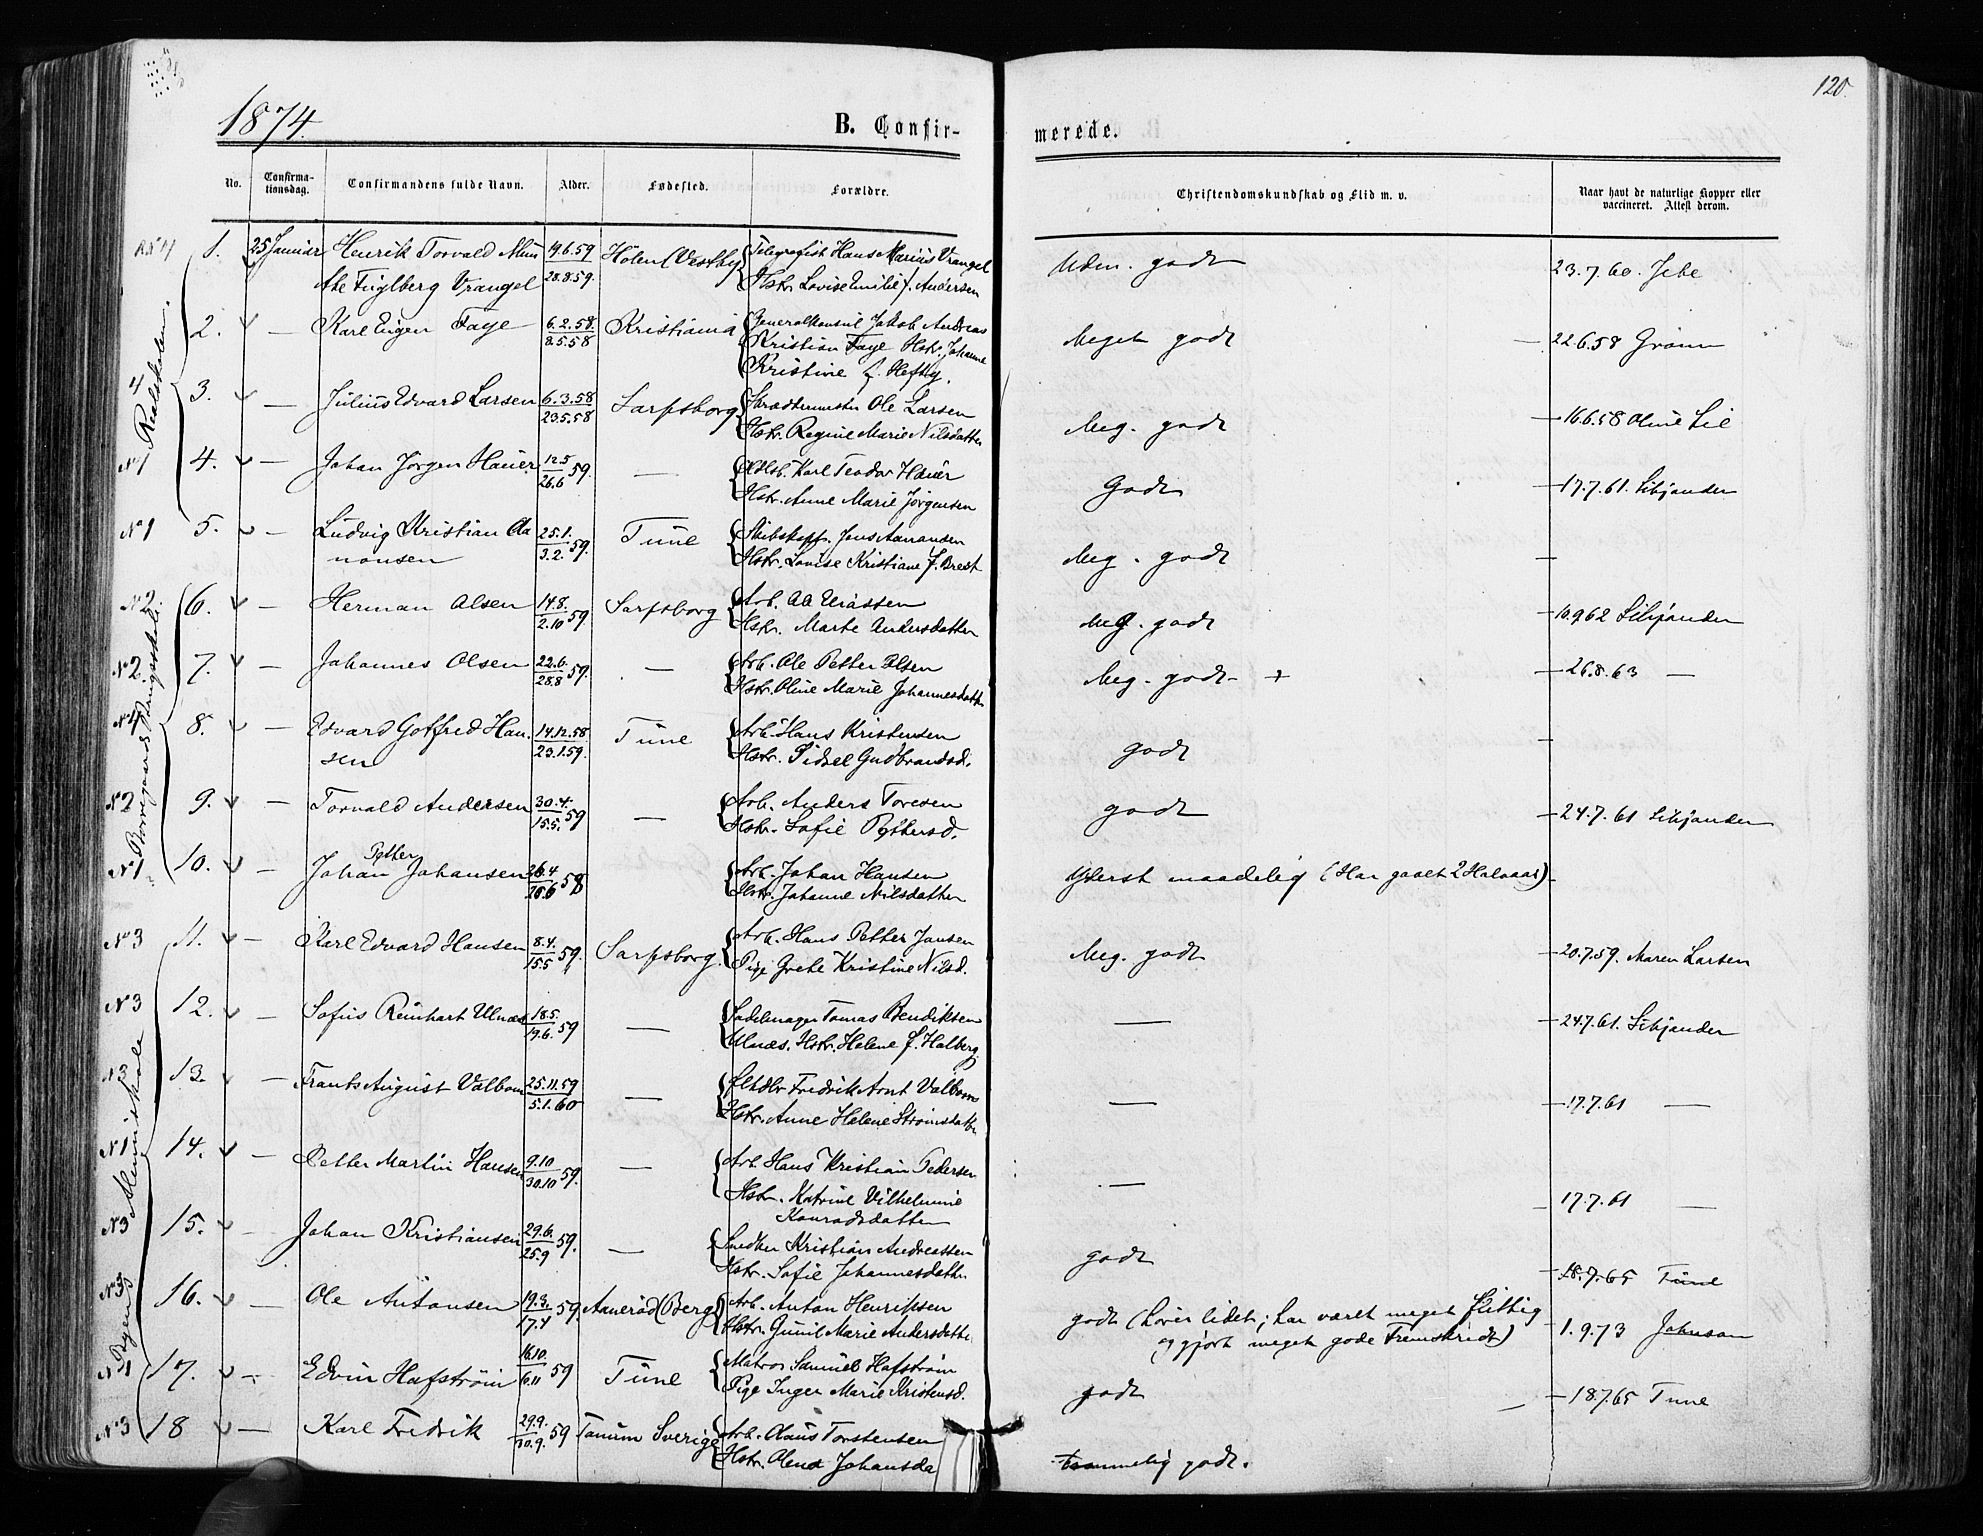 120.
1874.
B. Confir-
merede.
No.
Confirma-
tionsdag.
Confirmandens fulde Navn.
Alder.
Fødested.
Forældre.
Christendomskundskab og Flid m. v.
Naar havt de naturlige Kopper eller
vaccineret. Attest derom.
Realskolen
Borregaards Brugsskole
Byens Almueskole
1. 25 Januar Henrik Torvald Mun 19.6.59 Hølen (Vestby) Telegrafist Hans Marius Vrangel Udm. godt 23.7.60. Jebe
the Fuglberg Vrangel 28.8.59. Hstr. Lovise Emilie f. Andersen
2. — Karl Eugen Faye 6.2.58. Kristiania Generalkonsul Jakob Andreas Meget godt — 22.6.58 Grønn
8.5.58 Kristian Faye Hstr. Johanne
Kristine f. Heftÿ.
3. — Julius Edvard Larsen 6.3.58 Sarpsborg Skrædermester Ole Larsen Meg. godt — 16.6.58 Oline Lie
23.5.58 Hstr. Regine Marie Nilsdatter
No 1 4. — Johan Jørgen Hauer 12.5 59. — Karl Teodor Hauer Godt — 17.7.61. Silijander
26.6 Hstr. Anne Marie Jørgensen
No 1 5. — Ludvig Kristian Aa 25.1. 59. Tune Skibskapt. Jens Aanonsen Meg. godt —
nonsen 3.2. Hstr. Lovise Kristiane f. Brest
No 2 6. — Herman Olsen 14.8. 59. Sarpsborg Arb. Ol Mässen Meg. godt — 10.9.62 Silijander
2.10 Hstr. Marte Andersdatter
No 2 7. — Johannes Olsen 22.6. 59. — Arb. Ole Petter Olsen Meg. godt — + — 26.8.63 —
28.8 Hstr. Oline Marie Johannesdatter
8. — Edvard Gotfred Han 14.12.58. Tune Arb. Hans Kristensen godt —
sen 23.1.59. Hstr. Sidsel Gudbrandsd.
No 2 9. — Torvald Andersen 30.4. 59 — Arb. Anders Toresen godt — 24.7.61 Silijander
15.5. Hstr. Sofie Pettersd.
Petter
No 1 10. — Johan Johansen 26.4 58 Arb. Johan Hansen Yderst maadelig (Har gaaet 2 Halvaar) —
Hstr. Johanne Nilsdatter
No 3 11. — Karl Edvard Hansen 8.4. 59. Sarpsborg. Arb. Hans Petter Jansen Meg. godt — 20.7.59. Maren Larsen
15.5 Pige Grete Kristine Nilsd.
No 3 12. — Sofus Reinhart Ulnæs 18.5. 59 — Sadelmager Tomas Bendiksen — — 24.7.61. Silijander
19.6. Ulnæs. Hstr. Helene f. Halberg
No 3 13. — Frants August Valbom 25.11.59 — Fredrik Arnt Valbom — — 17.7.61 —
5.1.60 Hstr. Anne Helene Strømsdatter
No 1 14. — Petter Martin Hansen 9.10 59. — Arb. Hans Kristian Pedersen — — 17.7.61 —
30.10 Hstr. Katrine Vilhelmine
Konradsdatter
No 3 15. — Johan Kristiansen 29.6. 59. — Snedker Kristian Andreassen godt — 18.7.65 Tune
25.9 Hstr. Sofie Johannesdatter
No 3 16. — Ole Antonsen 19.3. 59. Aanerød (Berg) Arb. Anton Henriksen godt (hører lidet; har været meget flittig — 1.9.73 Johnson
17.4 Hstr. Gunil Marie Andersdatter og gjort meget gode Fremskridt)
No 1 17. — Edvin Hafstrøm 16.10. 59 Tune Matros Samuel Hafstrøm godt — 18.7.65 Tune
6.11 Pige Inger Marie Kristensd.
No 3 18 — Karl Fredrik 29.9. 59 Tanum Sverige Arb. Olaus Torstensen temmelig godt.
Hstr. Olena Johansda